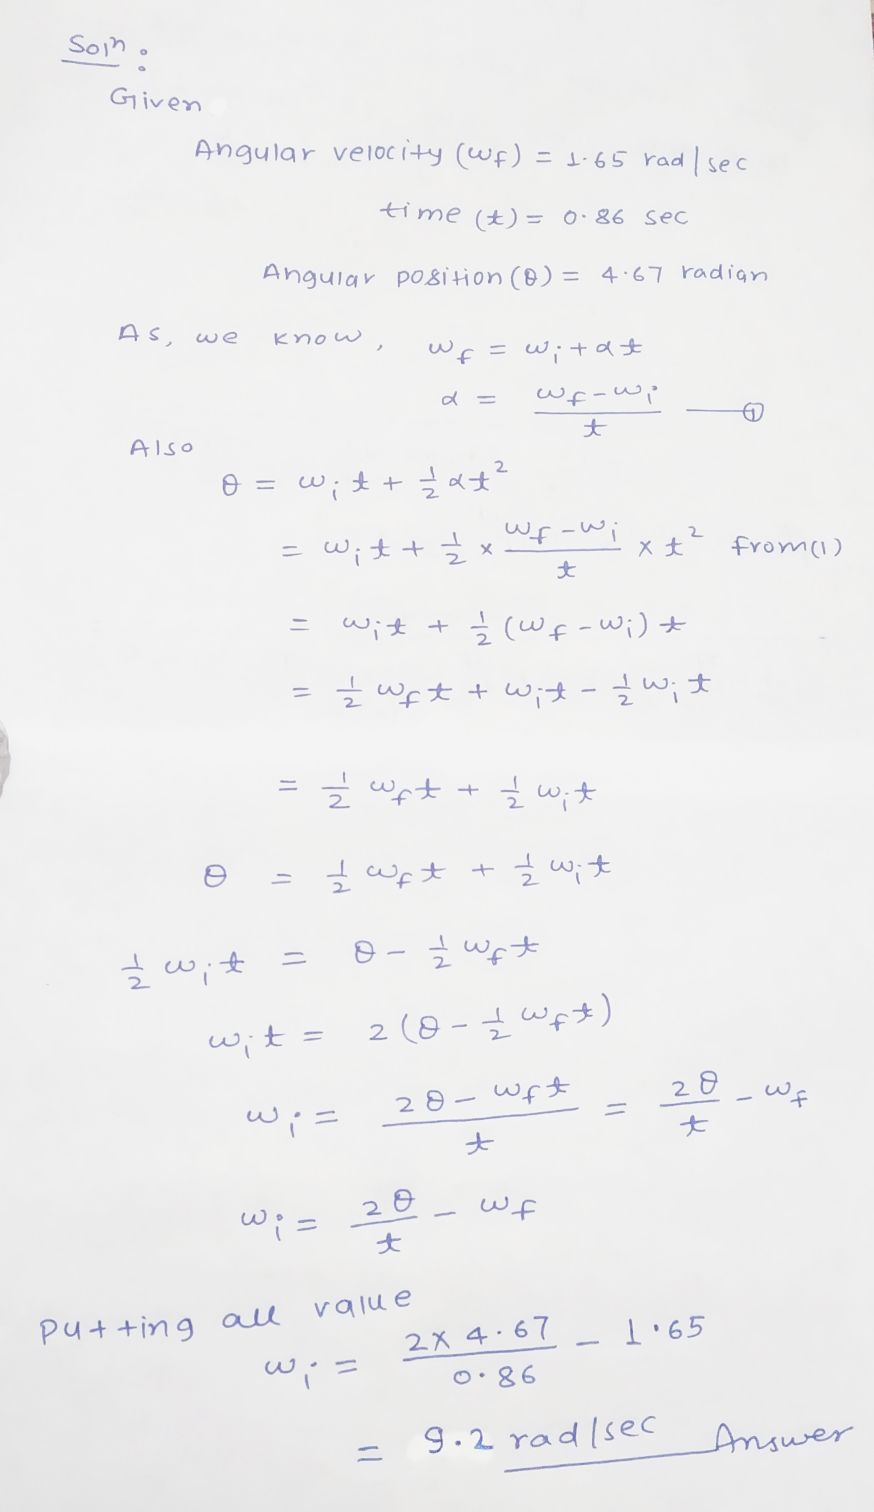 Soln :
Given
Angular velocity (ωf) = 1.65 rad/sec
time (t) = 0.86 sec
Angular position (θ) = 4.67 radian
As, we know, ωf = ωi + αt
α = (ωf - ωi)/t —— ①
Also
θ = ωi t + 1/2 αt²
= ωi t + 1/2 × (ωf - ωi)/t × t² from (1)
= ωi t + 1/2 (ωf - ωi) t
= 1/2 ωf t + ωi t - 1/2 ωi t
= 1/2 ωf t + 1/2 ωi t
θ = 1/2 ωf t + 1/2 ωi t
1/2 ωi t = θ - 1/2 ωf t
ωi t = 2(θ - 1/2 ωf t)
ωi = (2θ - ωf t)/t = 2θ/t - ωf
ωi = 2θ/t - ωf
Putting all value
ωi = (2 × 4.67)/0.86 - 1.65
= 9.2 rad/sec Answer